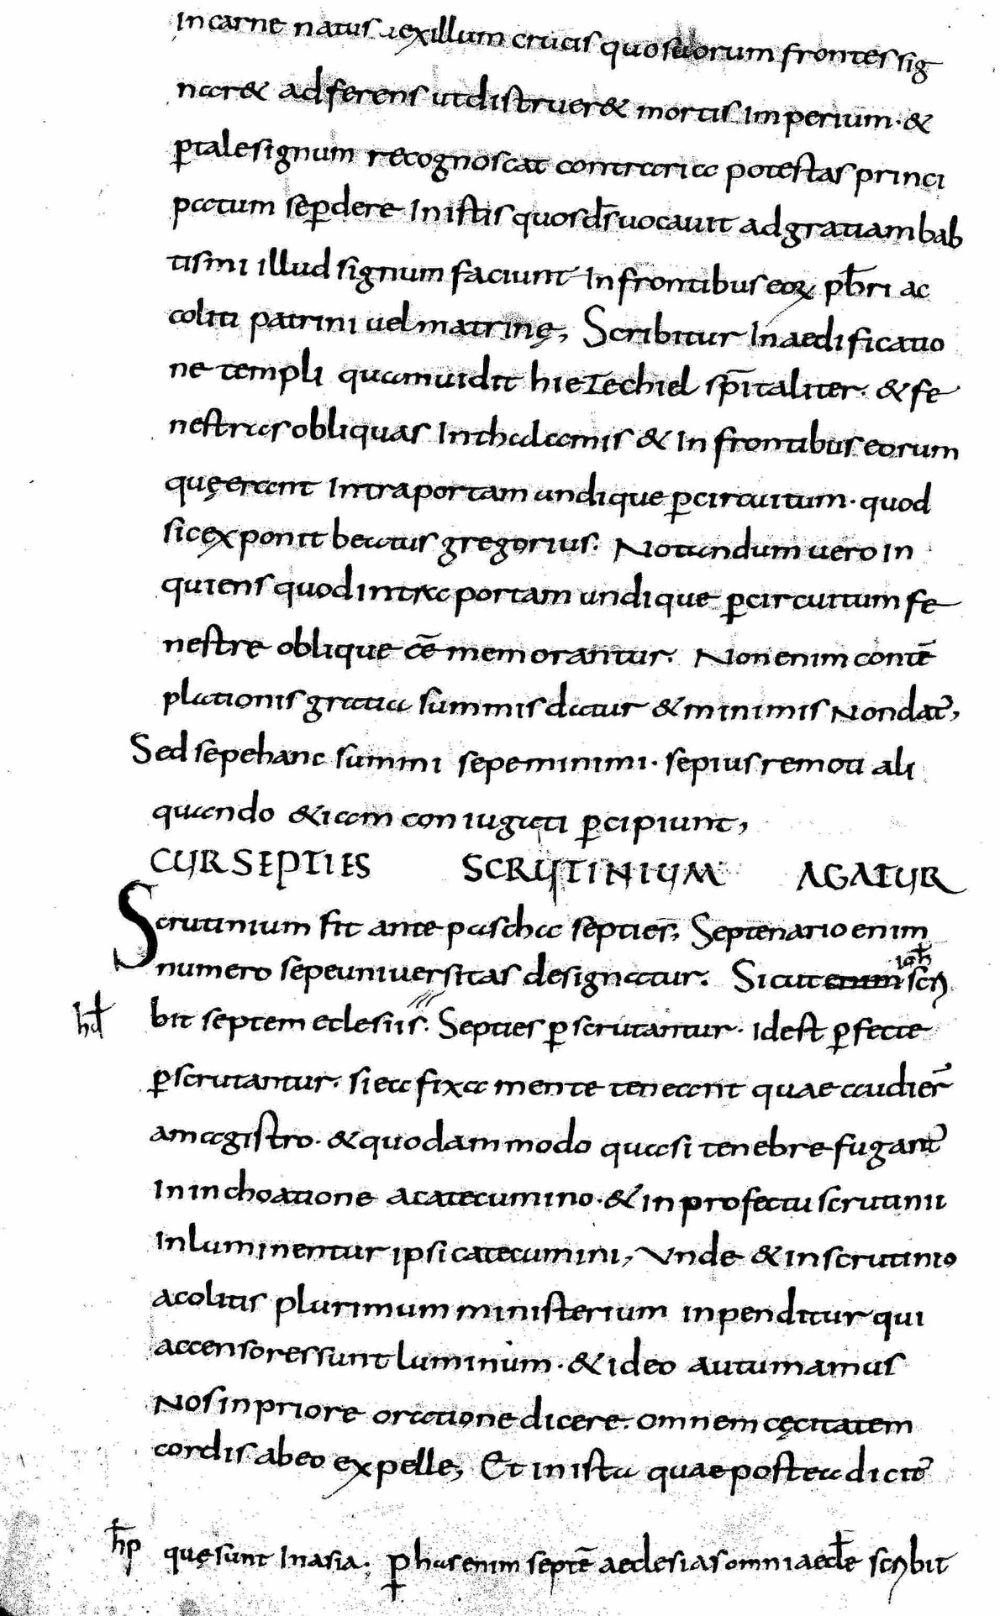 Incarne natus uexillum crucis quo suorum frontes sig
nar& adferens ut distruer& mortis Imperium · &
p̱ tale signum recognoscat contraria potestas princi
patum sep̱dere · In istis quos d̄s uocauit ad gratiam bab
tismi illud signum faciunt In frontibus eoꝝ pb̄ri ac
coliti patrini uel matrinę, Scribitur In aedificatio
ne templi quam uidit hieZechiel sp̄italiter · & fe
nestras obliquas In thalamis & In frontibus eorum
quę erant Intra portam undique p̱ circuitum · quod
sic exponit beatus gregorius · Notandum uero In
quiens quod intra portam undique p̱ circuitum fe
nestre oblique eē memorantur · Non enim contē
plationis gratia summis datur & minimis Non dat̄,
Sed sepe hanc summi sepe minimi · sepius remoti ali
quando &iam coniugati p̱cipiunt,
CUR SEPTIES SCRUTINIUM AGATUR
Scrutinium fit ante pascha septies, Septenario enim
numero sepe uniuersitas designatur · Sicut enim ioh̄ scri
hd bit septem eclesiis · Septies p̱scrutantur · Id est p̱fecte
p̱scrutantur · si ea fixa mente teneant quae audier̄
a magistro · & quodammodo quasi tenebre fugant̄
In inchoatione a catecumino · & in profectu scrutinii
Inluminentur ipsi catecumini, Unde & in scrutinio
acolitis plurimum ministerium inpenditur qui
accensores sunt luminum · & ideo autumamus
Nos in priore oratione dicere · omnem cęcitatem
cordis ab eo expelle, Et in ista quae postea dicit̄
hp quę sunt In asia · p̱ has enim septē aeclesias omni aecl̄e scribit